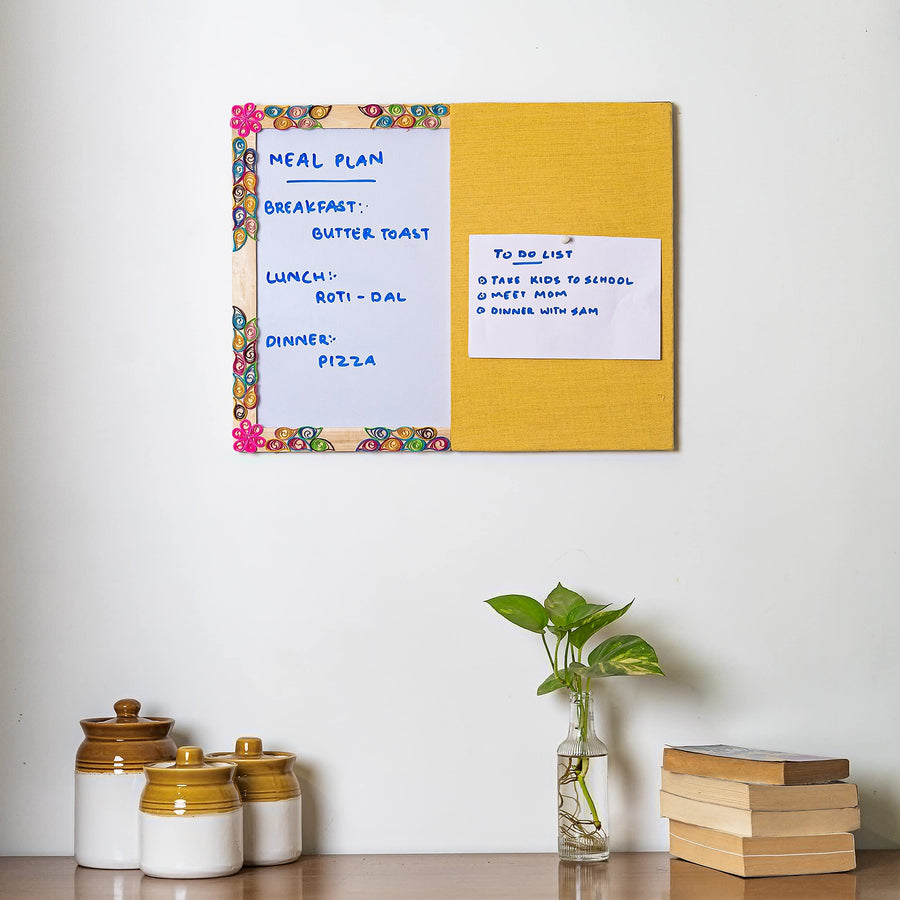 MEAL PLAN
BREAKFAST:-
BUTTER TOAST
LUNCH:-
ROTI - DAL
DINNER:-
PIZZA
TO DO LIST
TAKE KIDS TO SCHOOL
MEET MOM
DINNER WITH SAM